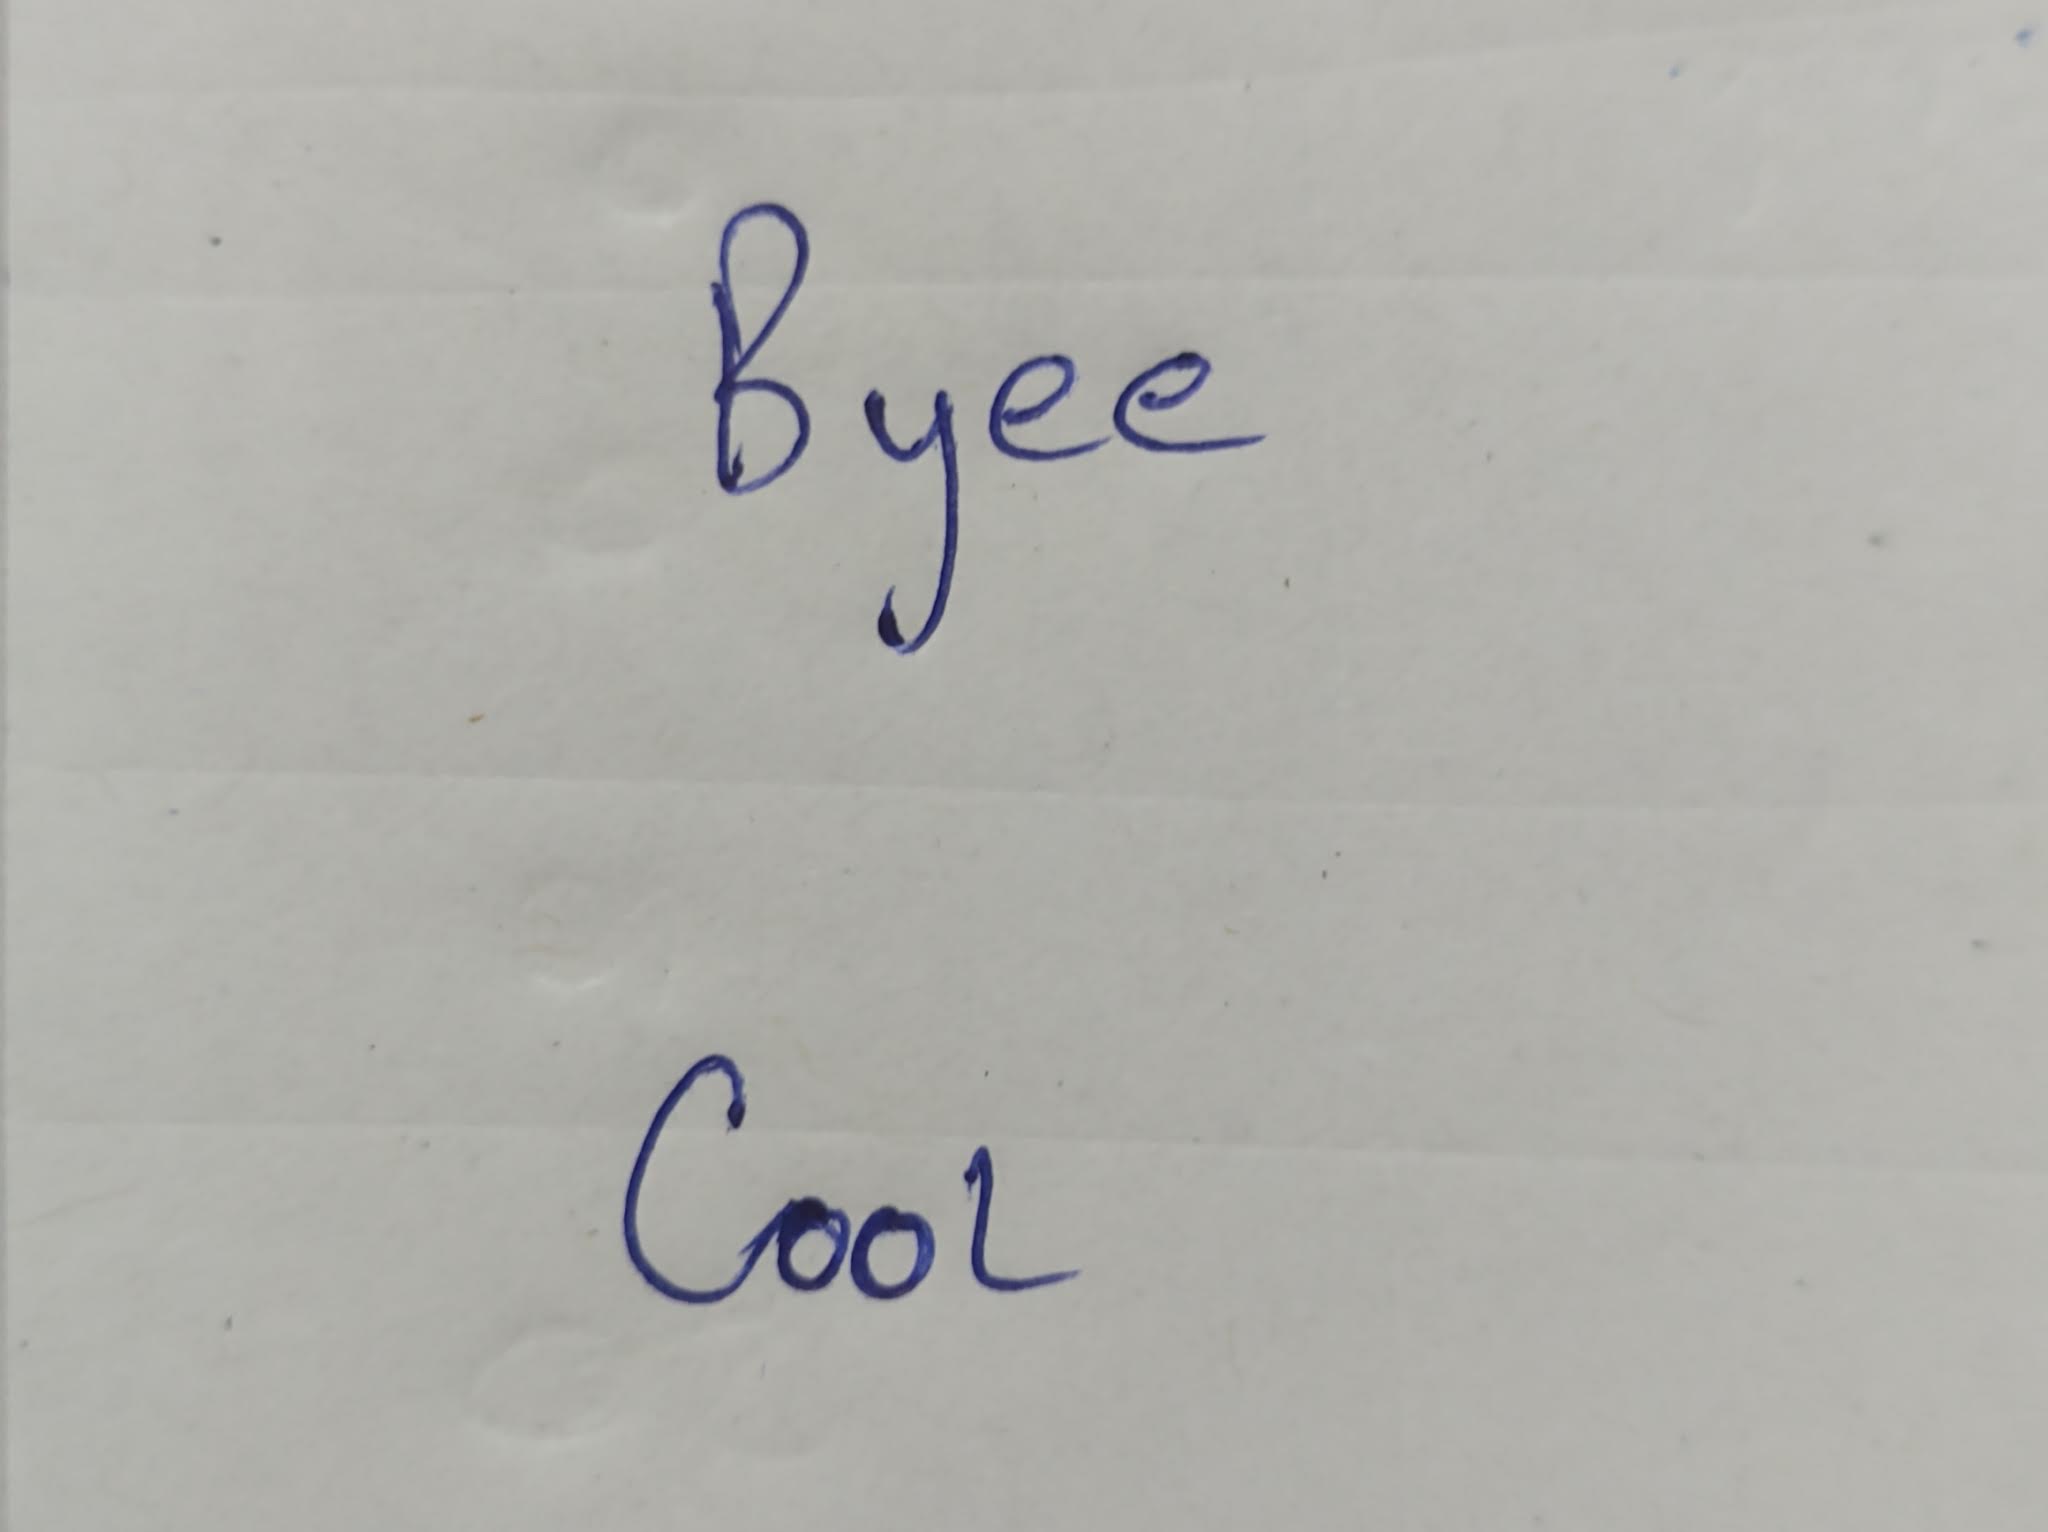 Byee
Cool